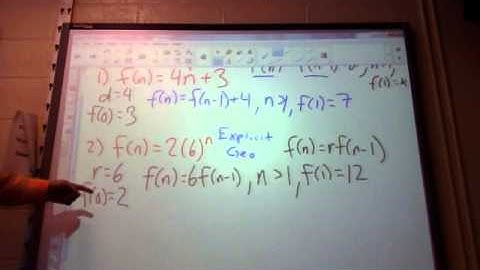 1) f(n) = 4n + 3
d = 4
f(n) = f(n-1) + 4, n>1, f(1) = 7
f(0) = 3
2) f(n) = 2(6)^n Explicit Geo f(n) = rf(n-1)
r = 6 f(n) = 6f(n-1), n > 1, f(1) = 12
f(0) = 2